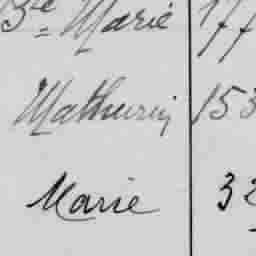 3e = Marie 177
Mathurin 153
Marie 32